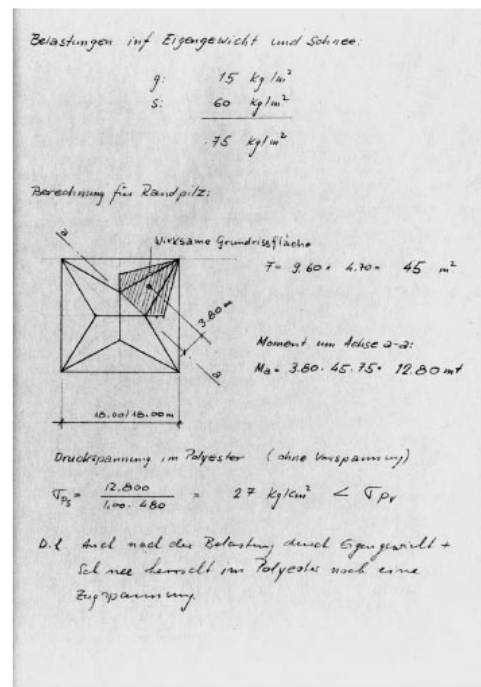 Belastungen inf Eigengewicht und Schnee:
g: 15 kg/m²
s: 60 kg/m²
75 kg/m²
Berechnung für Randpilz:
a
Wirksame Grundrissfläche
F = 9.60 · 4.70 = 45 m²
3.80 m
Moment um Achse a-a:
Ma = 3.80 · 45 · 75 = 12.80 mt
a
18.00/18.00 m
Druckspannung im Polyester (ohne Vorspannung)
σps = 12.800 / 1,00 · 480 = 27 kg/cm² < σpv
D.h. Auch nach der Belastung durch Eigengewicht +
Schnee herrscht im Polyester noch eine
Zugspannung.